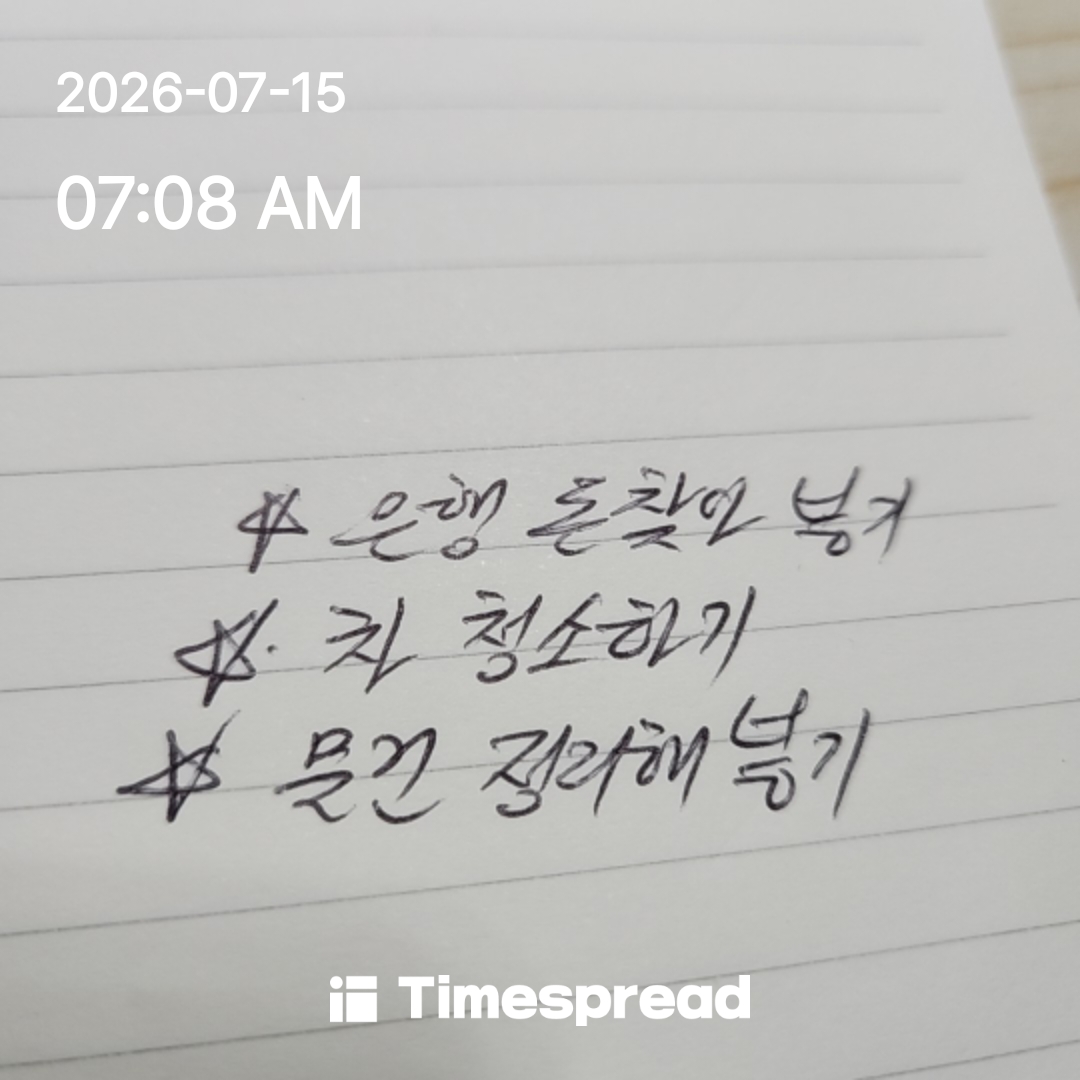 2026-07-15
07:08 AM
☆ 은행 돈찾아 붕기
☆. 차 청소하기
☆ 물건 정리해 붕기
Timespread